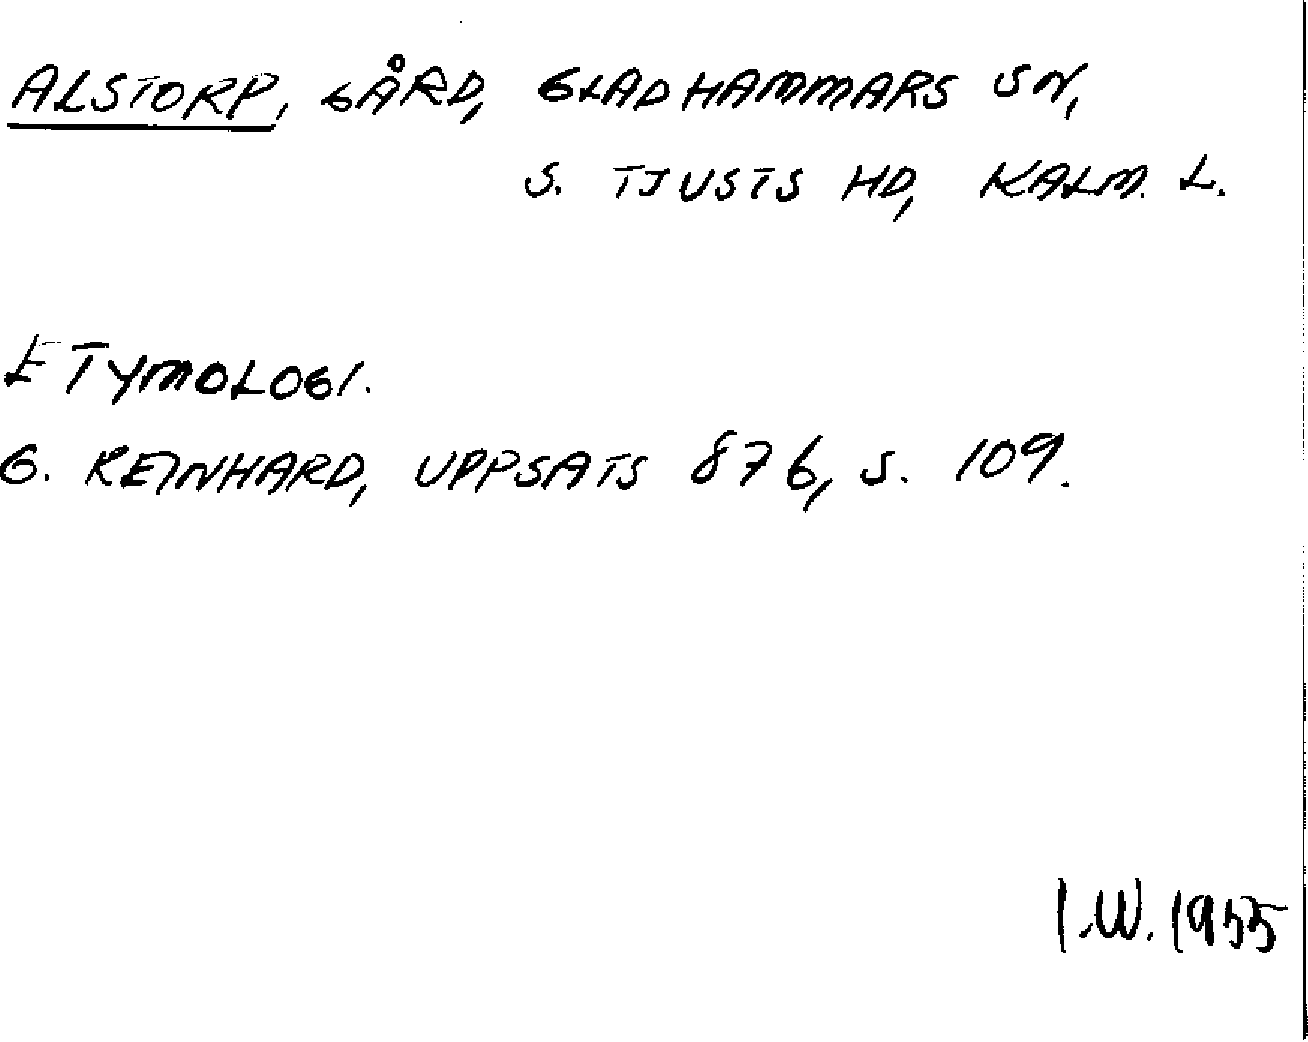 ALSTORP, GÅRD, GLADHAMMARS SN,
S. TJUSTS HD, KALM. L.
ETYMOLOGI.
G. REINHARD, UPPSATS 876, S. 109.
I.W. 1955